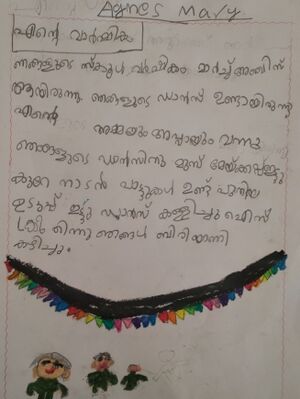 Agnes Mary
എന്റെ വാർഷികം
ഞങ്ങളുടെ സ്കൂൾ വാർഷികം മാർച്ച് അഞ്ചിന്
ആയിരുന്നു. ഞങ്ങളുടെ ഡാൻസ് ഉണ്ടായിരുന്നു
എന്റെ
അമ്മയും അപ്പായും വന്നു
ഞങ്ങളുടെ ഡാൻസിനു മുമ്പ് മേയ്ക്കപ്പ് ഇട്ടു
കുറേ നാടൻ പാട്ടുകൾ ഉണ്ട് പുതിയ
ഉടുപ്പ് ഇട്ടു ഡാൻസ് കളിച്ചു
തിന്നു ഞങ്ങൾ ബിരിയാണി
കഴിച്ചു.